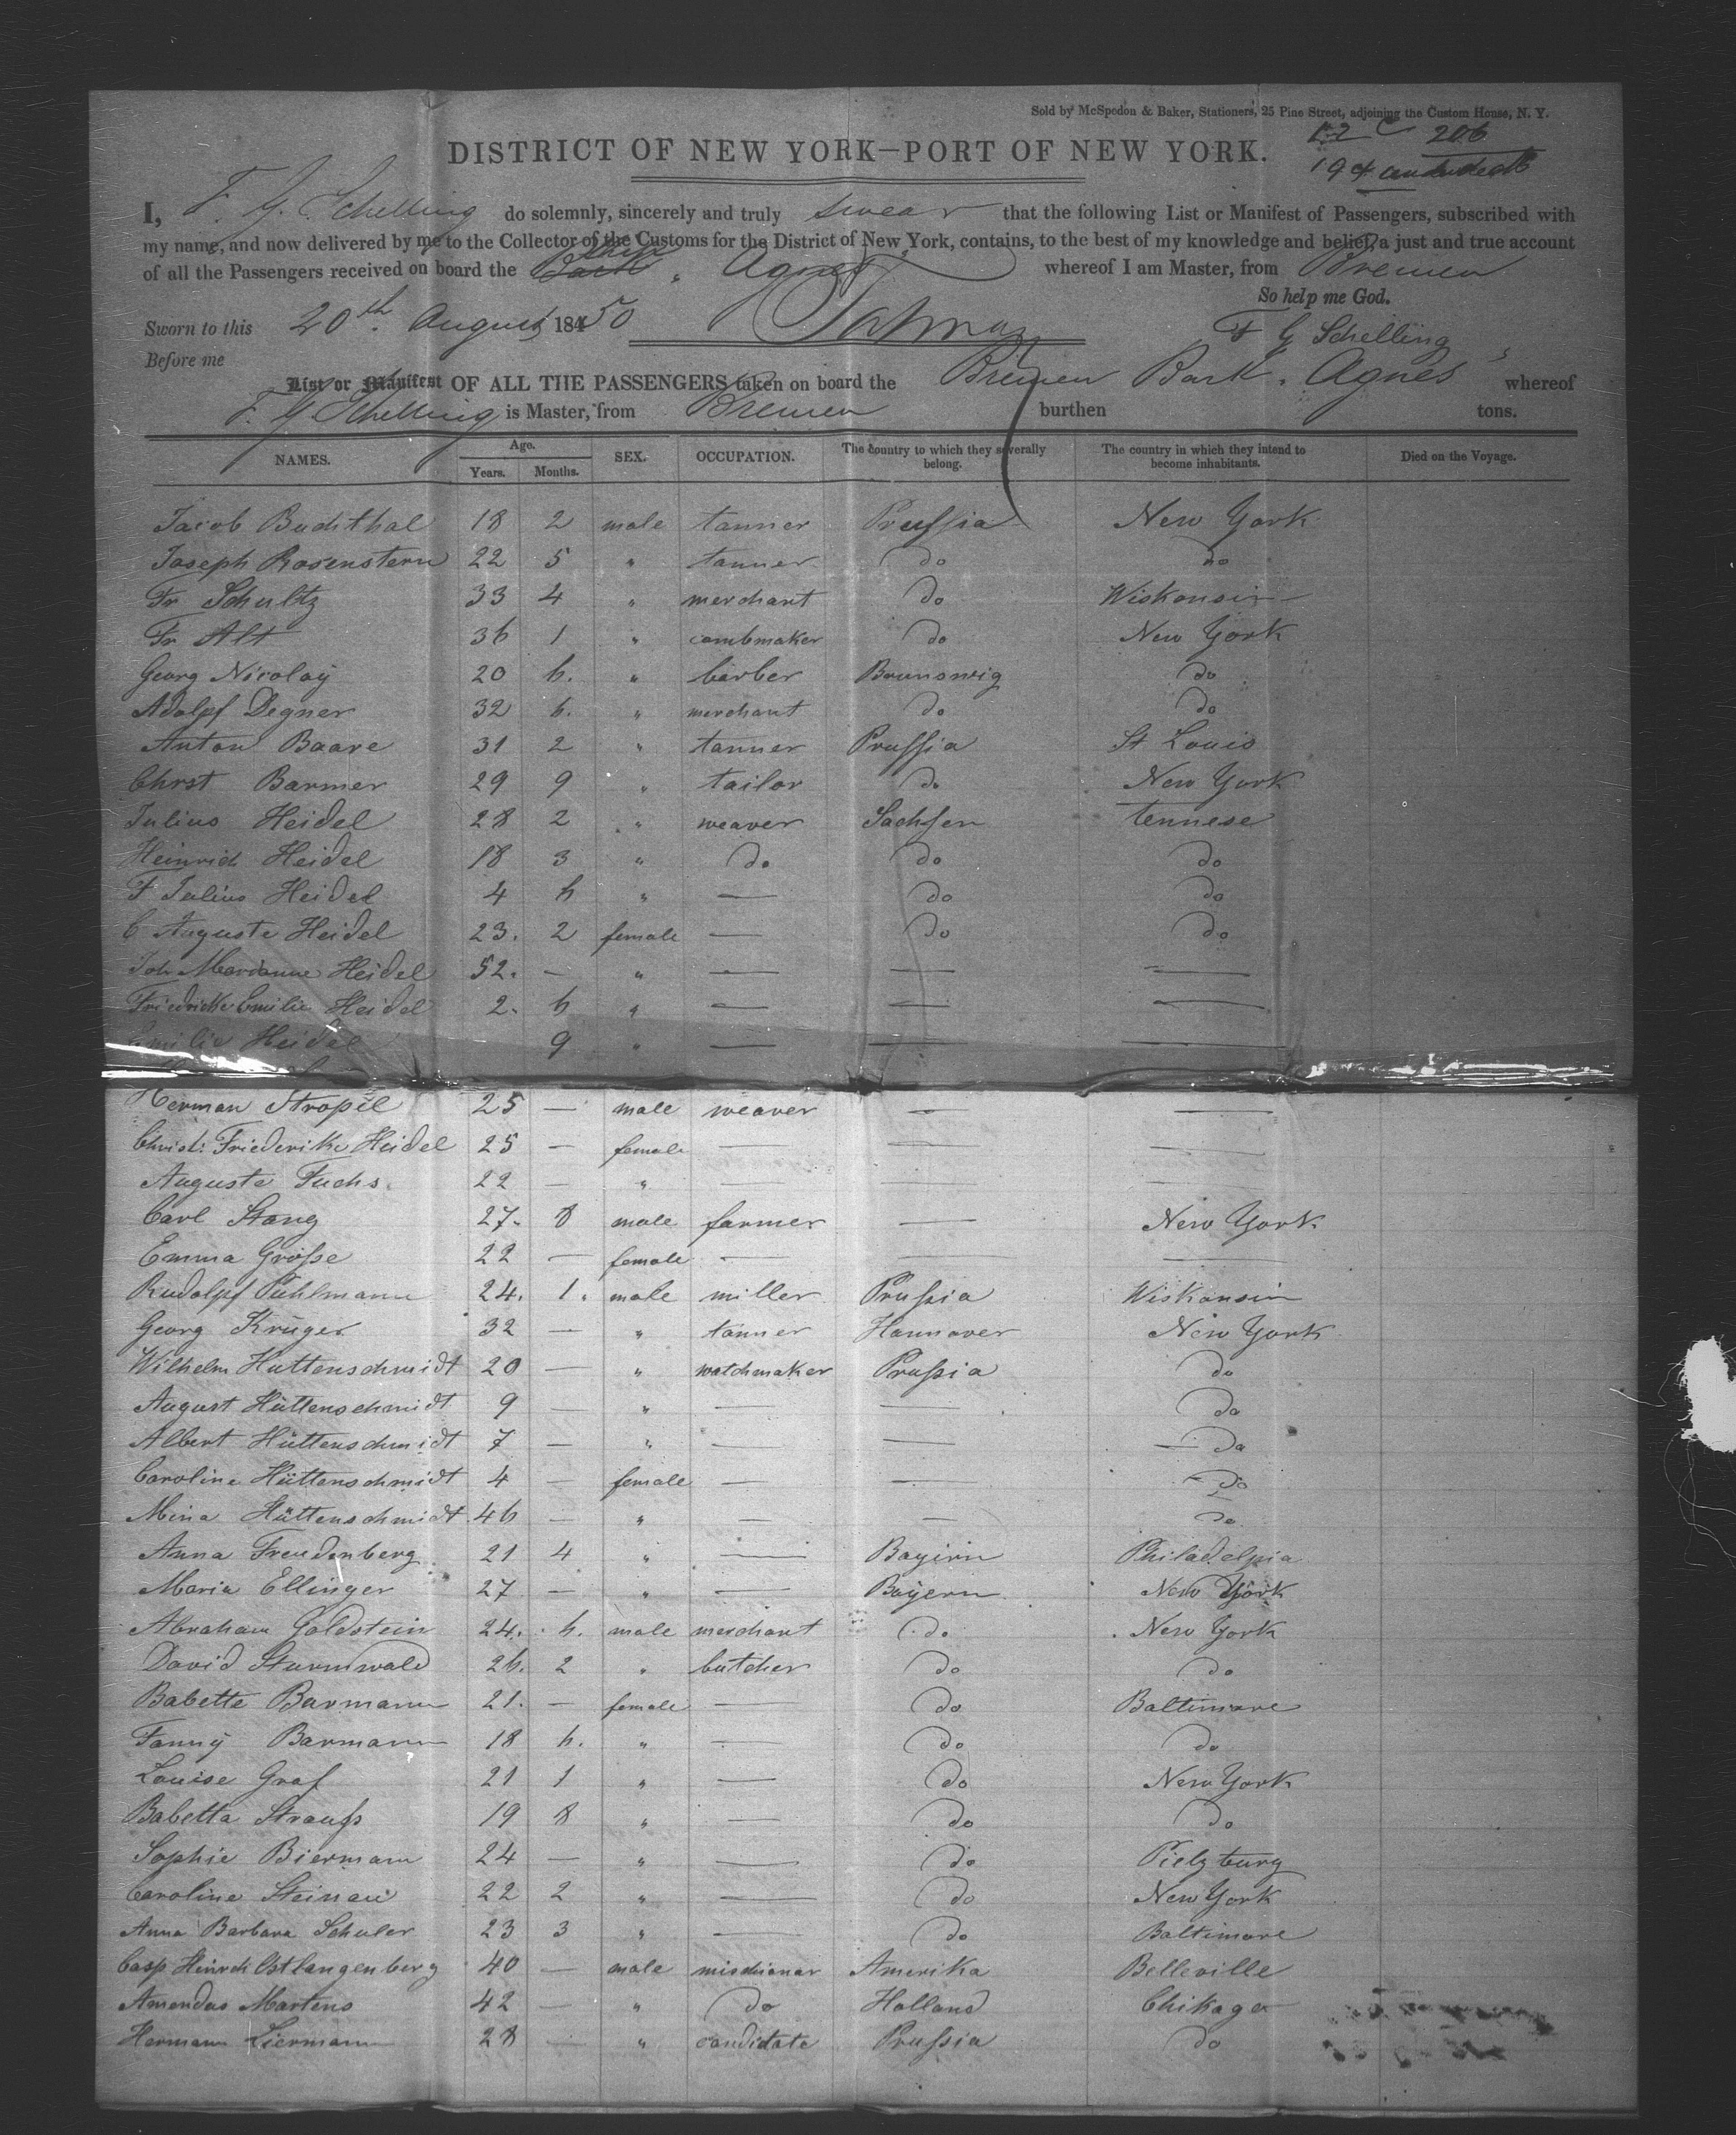 Sold by McSpedon & Baker, Stationers, 25 Pine Street, adjoining the Custom House, N. Y.
12 C 206
DISTRICT OF NEW YORK—PORT OF NEW YORK.
194
I, F. G. Schelling do solemnly, sincerely and truly swear that the following List or Manifest of Passengers, subscribed with
my name, and now delivered by me to the Collector of the Customs for the District of New York, contains, to the best of my knowledge and belief, a just and true account
of all the Passengers received on board the Agnes whereof I am Master, from Bremen
So help me God.
Sworn to this 20th. August 18450
F G Schelling
Before me
List or Manifest OF ALL THE PASSENGERS taken on board the Bremen Bark. Agnes whereof
F. G Schelling is Master, from Bremen burthen tons.
NAMES. Age. Years. Months. SEX. OCCUPATION. The country to which they severally belong. The country in which they intend to become inhabitants. Died on the Voyage.
Jacob Buchthal 18 2 male tanner Prussia New York
Joseph Rosenstern 22 5 " tanner do do
Fr Schultz 33 4 " merchant do Wiskonsin
Fr Alt 36 1 " combmaker do New York
Georg Nicolay 20 6. " barber Braunsweig do
Adolpf Degner 32 6. " merchant do do
Anton Baare 31 2 " tanner Prussia St Louis
Christ Barmer 29 9 " tailor do New York
Julius Heidel 28 2 " weaver Sachsen Tennese
Heinrich Heidel 18 3 " do do do
F Julius Heidel 4 6 " — do do
C Auguste Heidel 23. 2 female — do do
Joh Marianne Heidel 52. — " — — —
Friedricke Emilie Heidel 2. 6 " — — —
Emilie Heidel 9 " — — —
Herman Stropel 25 — male weaver — —
Christ: Friederike Heidel 25 — female — — —
Auguste Fuchs. 22 — " — — —
Carl Stang 27. 8 male farmer — New York
Emma Grosse 22 — female — — —
Rudolpf Puhlmann 24. 1. male miller Prussia Wiskonsin
Georg Krüger 32 — " tanner Hannover New York
Wilhelm Huttenschmidt 20 — " watchmaker Prussia do
August Hüttenschmidt 9 — " — — do
Albert Hüttenschmidt 7 — " — — do
Caroline Hüttenschmidt 4 — female — — do
Mina Hüttenschmidt 46 — " — — do
Anna Freudenberg 21 4 " — Bayirn Philadelpia
Maria Ellinger 27 — " — Bayern New York
Abraham Goldstein 24. 6. male merchant do New York
David Sturmwald 26. 2 " butcher do do
Babette Barmann 21. — female — do Baltimore
Fanny Barmann 18 6. " — do do
Louise Graf 21 1 " — do New York
Babetta Strauss 19 8 " — do do
Sophie Biermann 24 — " — do
Caroline Steinau 22 2 " — do New York
Anna Barbara Schuler 23 3 " — do Baltimore
Casp Heinrch Ostlangenberg 40 — male mischionar Amerika Belleville
Amandus Martens 42 — " do Holland Chikago
Hermann Liermann 28 — " candidate Prussia do